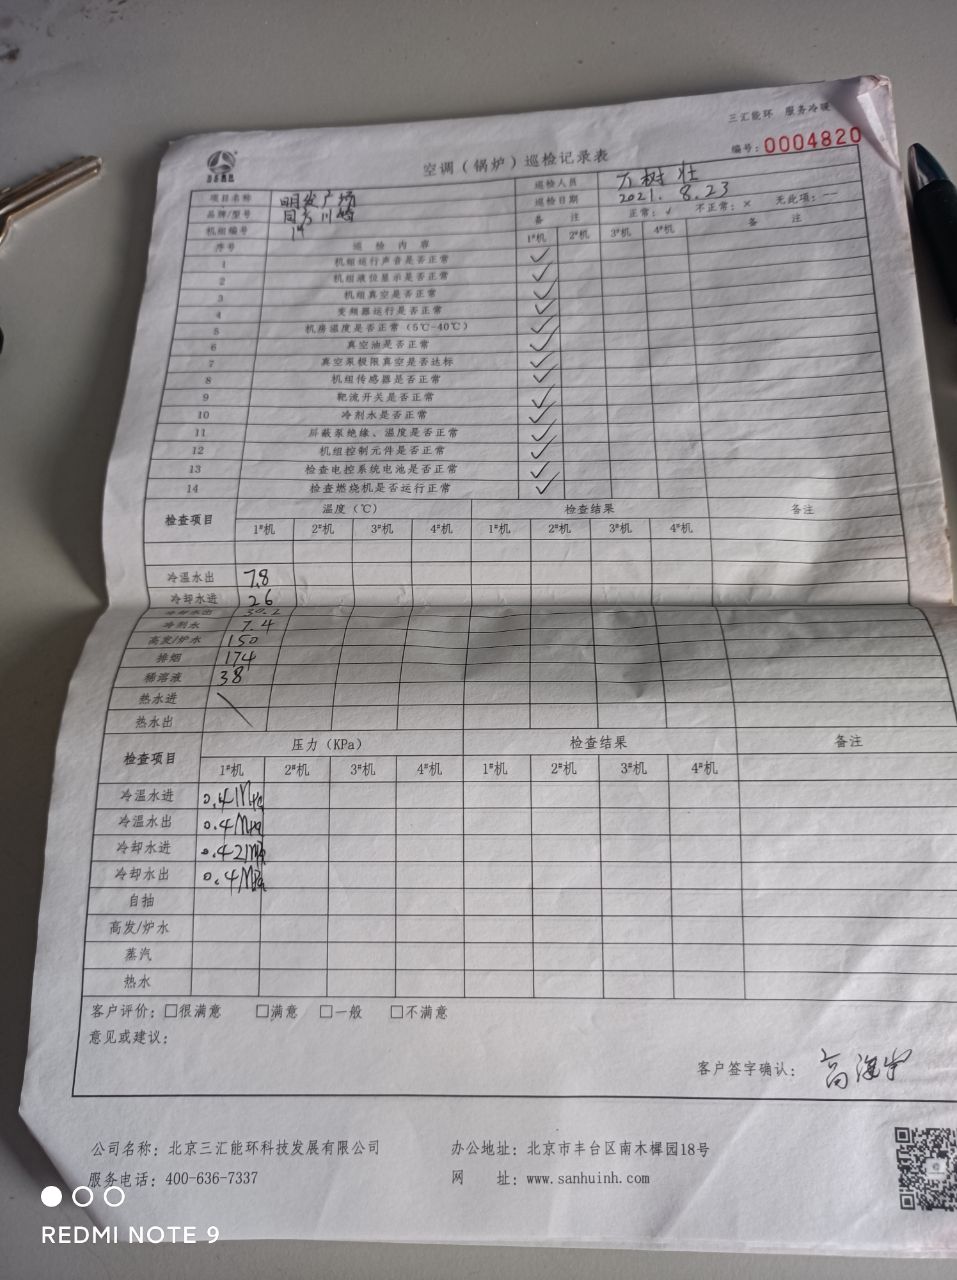 三汇能环 服务冷暖
空调（锅炉）巡检记录表
编号：0004820
项目名称 明发广场 巡检人员 万树壮
品牌/型号 同方川崎 巡检日期 2021.8.23
机组编号 1# 备 注 正常：√ 不正常：× 无此项：—
序号 巡 检 内 容 1#机 2#机 3#机 4#机 备 注
1 机组运行声音是否正常 ✓
2 机组液位显示是否正常 ✓
3 机组真空是否正常 ✓
4 变频器运行是否正常 ✓
5 机房温度是否正常（5℃-40℃） ✓
6 真空油是否正常 ✓
7 真空泵极限真空是否达标 ✓
8 机组传感器是否正常 ✓
9 靶流开关是否正常 ✓
10 冷剂水是否正常 ✓
11 屏蔽泵绝缘、温度是否正常 ✓
12 机组控制元件是否正常 ✓
13 检查电控系统电池是否正常 ✓
14 检查燃烧机是否运行正常 ✓
检查项目 温度（℃） 检查结果 备注
1#机 2#机 3#机 4#机 1#机 2#机 3#机 4#机
冷温水出 7.8
冷却水进 26
冷却水出 30.2
冷剂水 7.4
高发/炉水 150
排烟 174
稀溶液 38
热水进 \
热水出
检查项目 压力（KPa） 检查结果 备注
1#机 2#机 3#机 4#机 1#机 2#机 3#机 4#机
冷温水进 0.4MPa
冷温水出 0.4MPa
冷却水进 0.42MPa
冷却水出 0.4MPa
自抽
高发/炉水
蒸汽
热水
客户评价：□很满意 □满意 □一般 □不满意
意见或建议：
客户签字确认：
公司名称：北京三汇能环科技发展有限公司 办公地址：北京市丰台区南木樨园18号
服务电话：400-636-7337 网 址：www.sanhuinh.com
REDMI NOTE 9